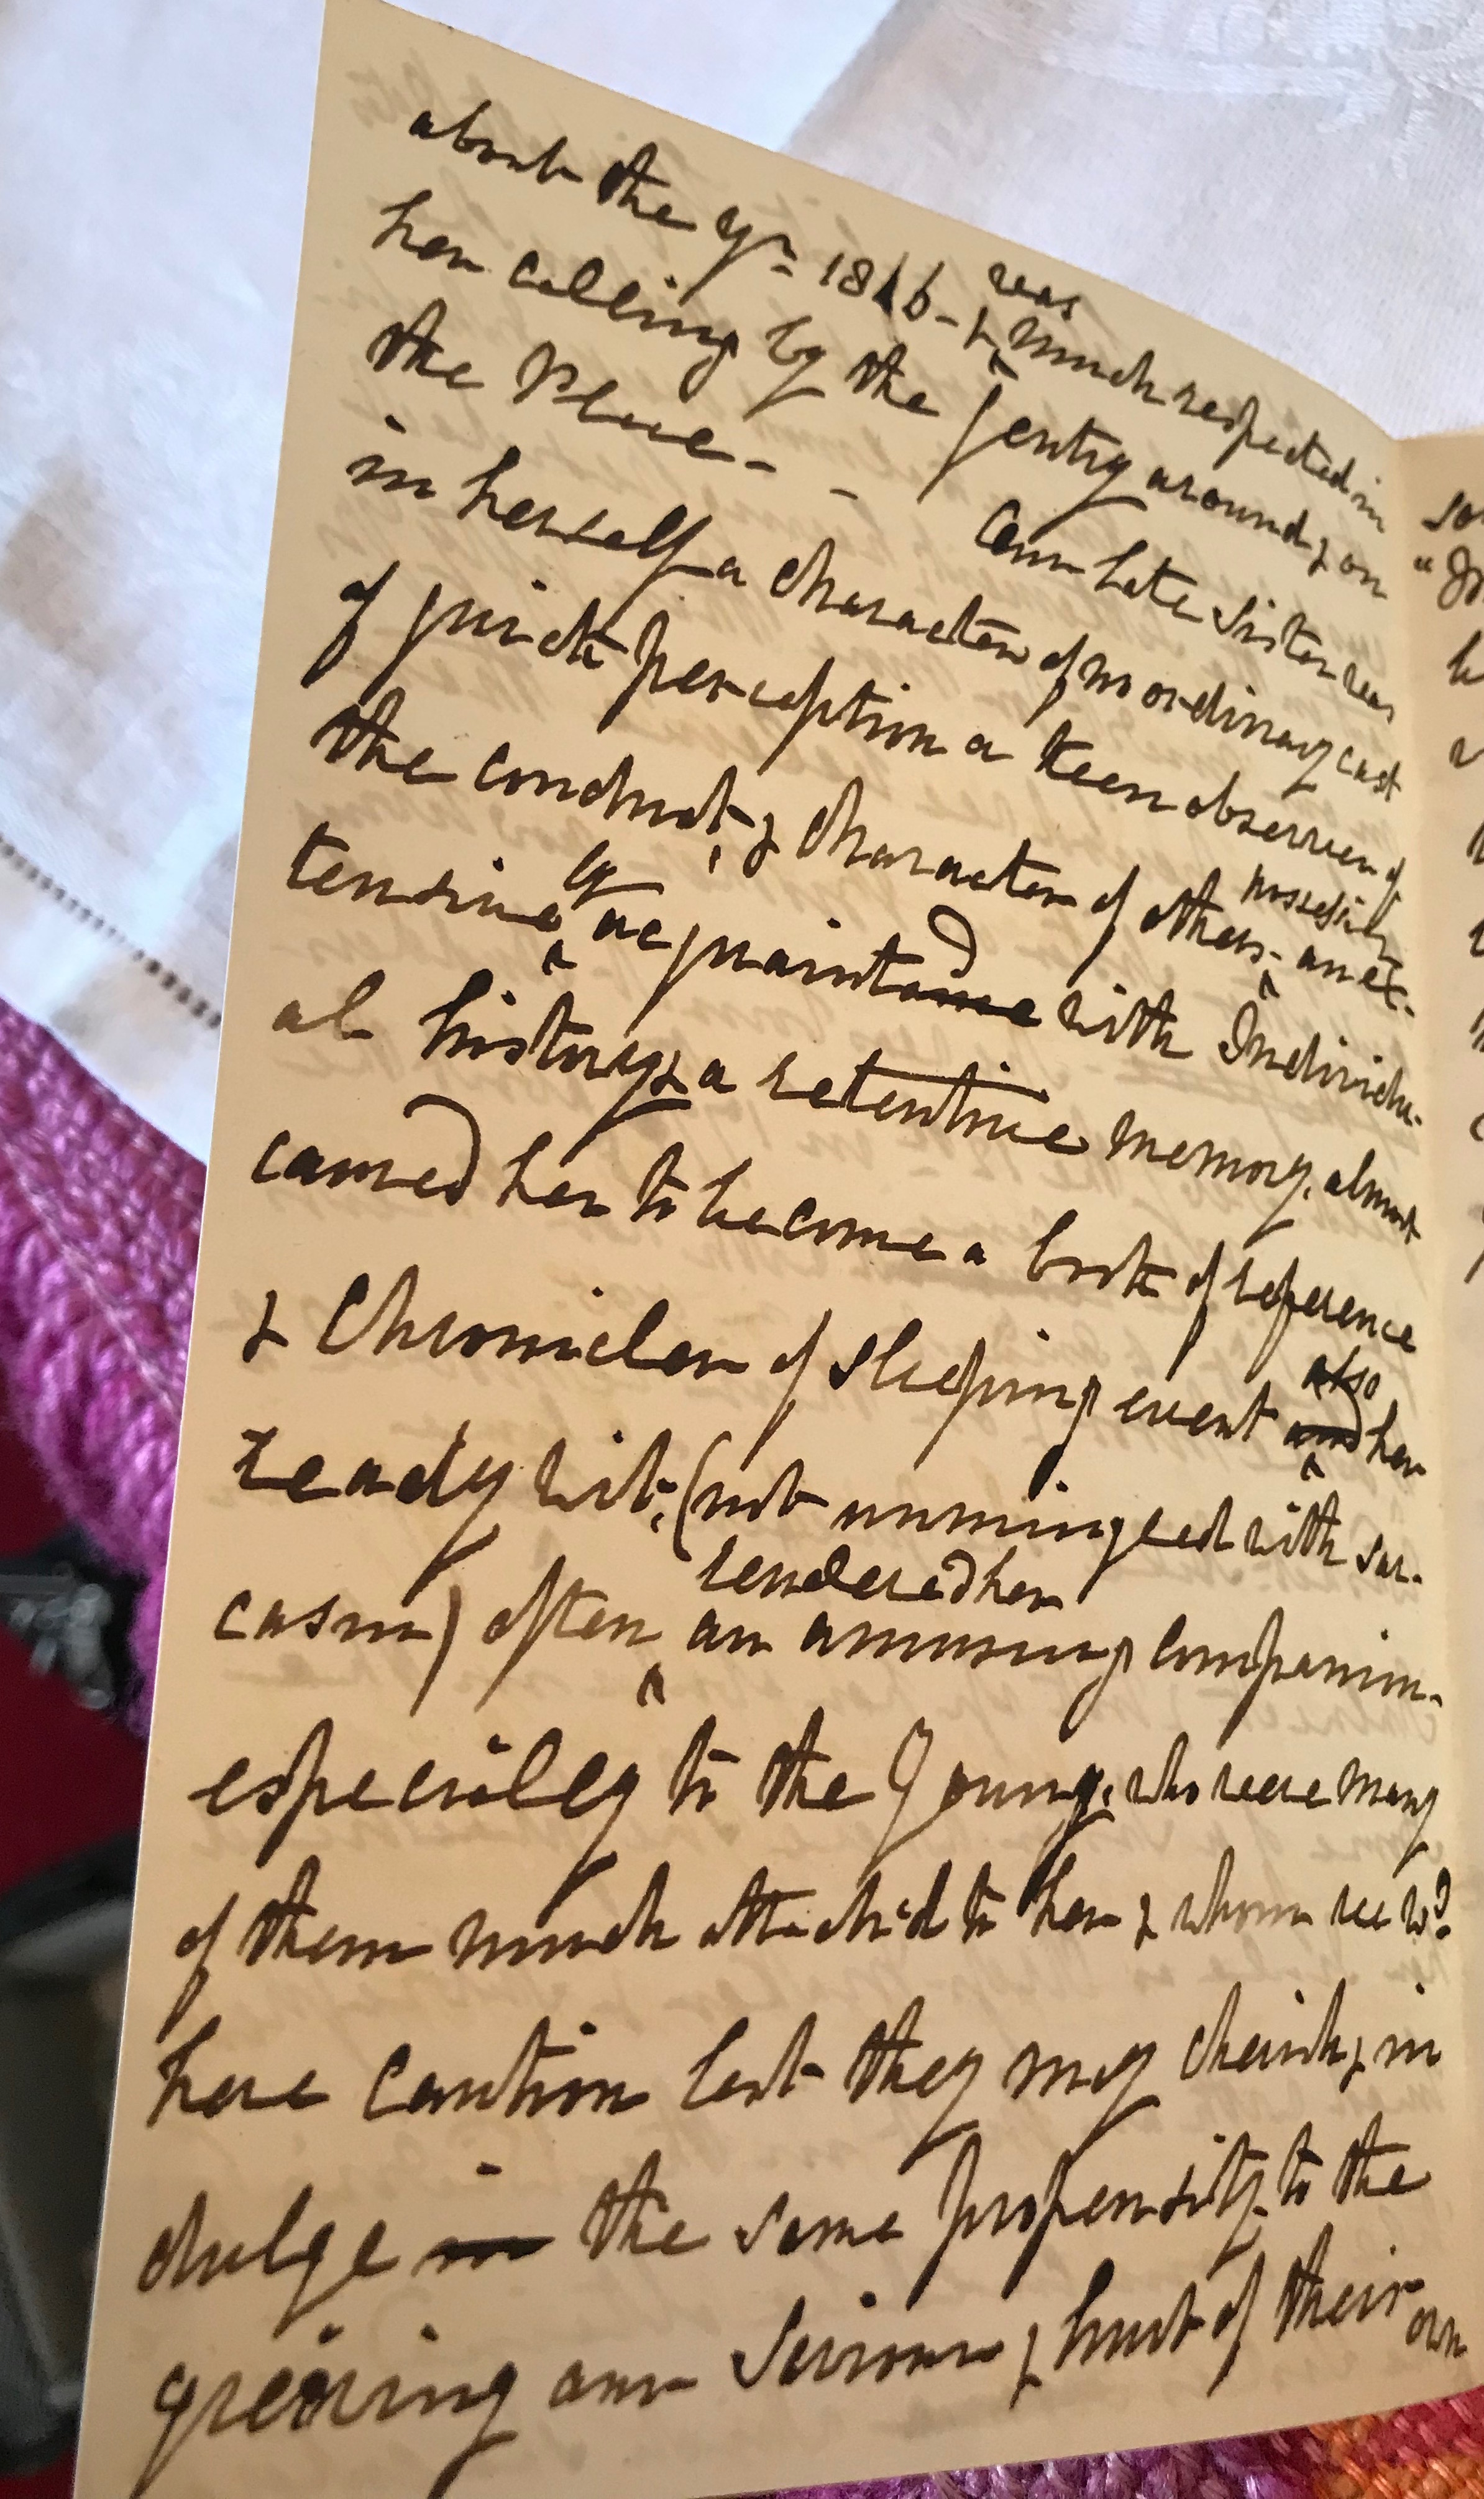 about the yr 1816 - & was much respected in
her calling by the gentry around, & on
the place - - Our late Sister was
in herself a character of no ordinary cast
of quick perception a keen observer of
the conduct, & character of others - possessing an ex-
tensive & acquainted with Individu-
al history, & a retentive memory, almost
caused her to become a book of reference
& Chronicler of sleeping event also her
ready wit, (not unmingled with sar-
casm) often rendered her an amusing companion -
especially to the Young, who were many
of them much attach'd to her & whom we wd
here caution lest they may cherish, & in
dulge in the same propensity, to the
grieving our Saviour & hurt of their own
so
"